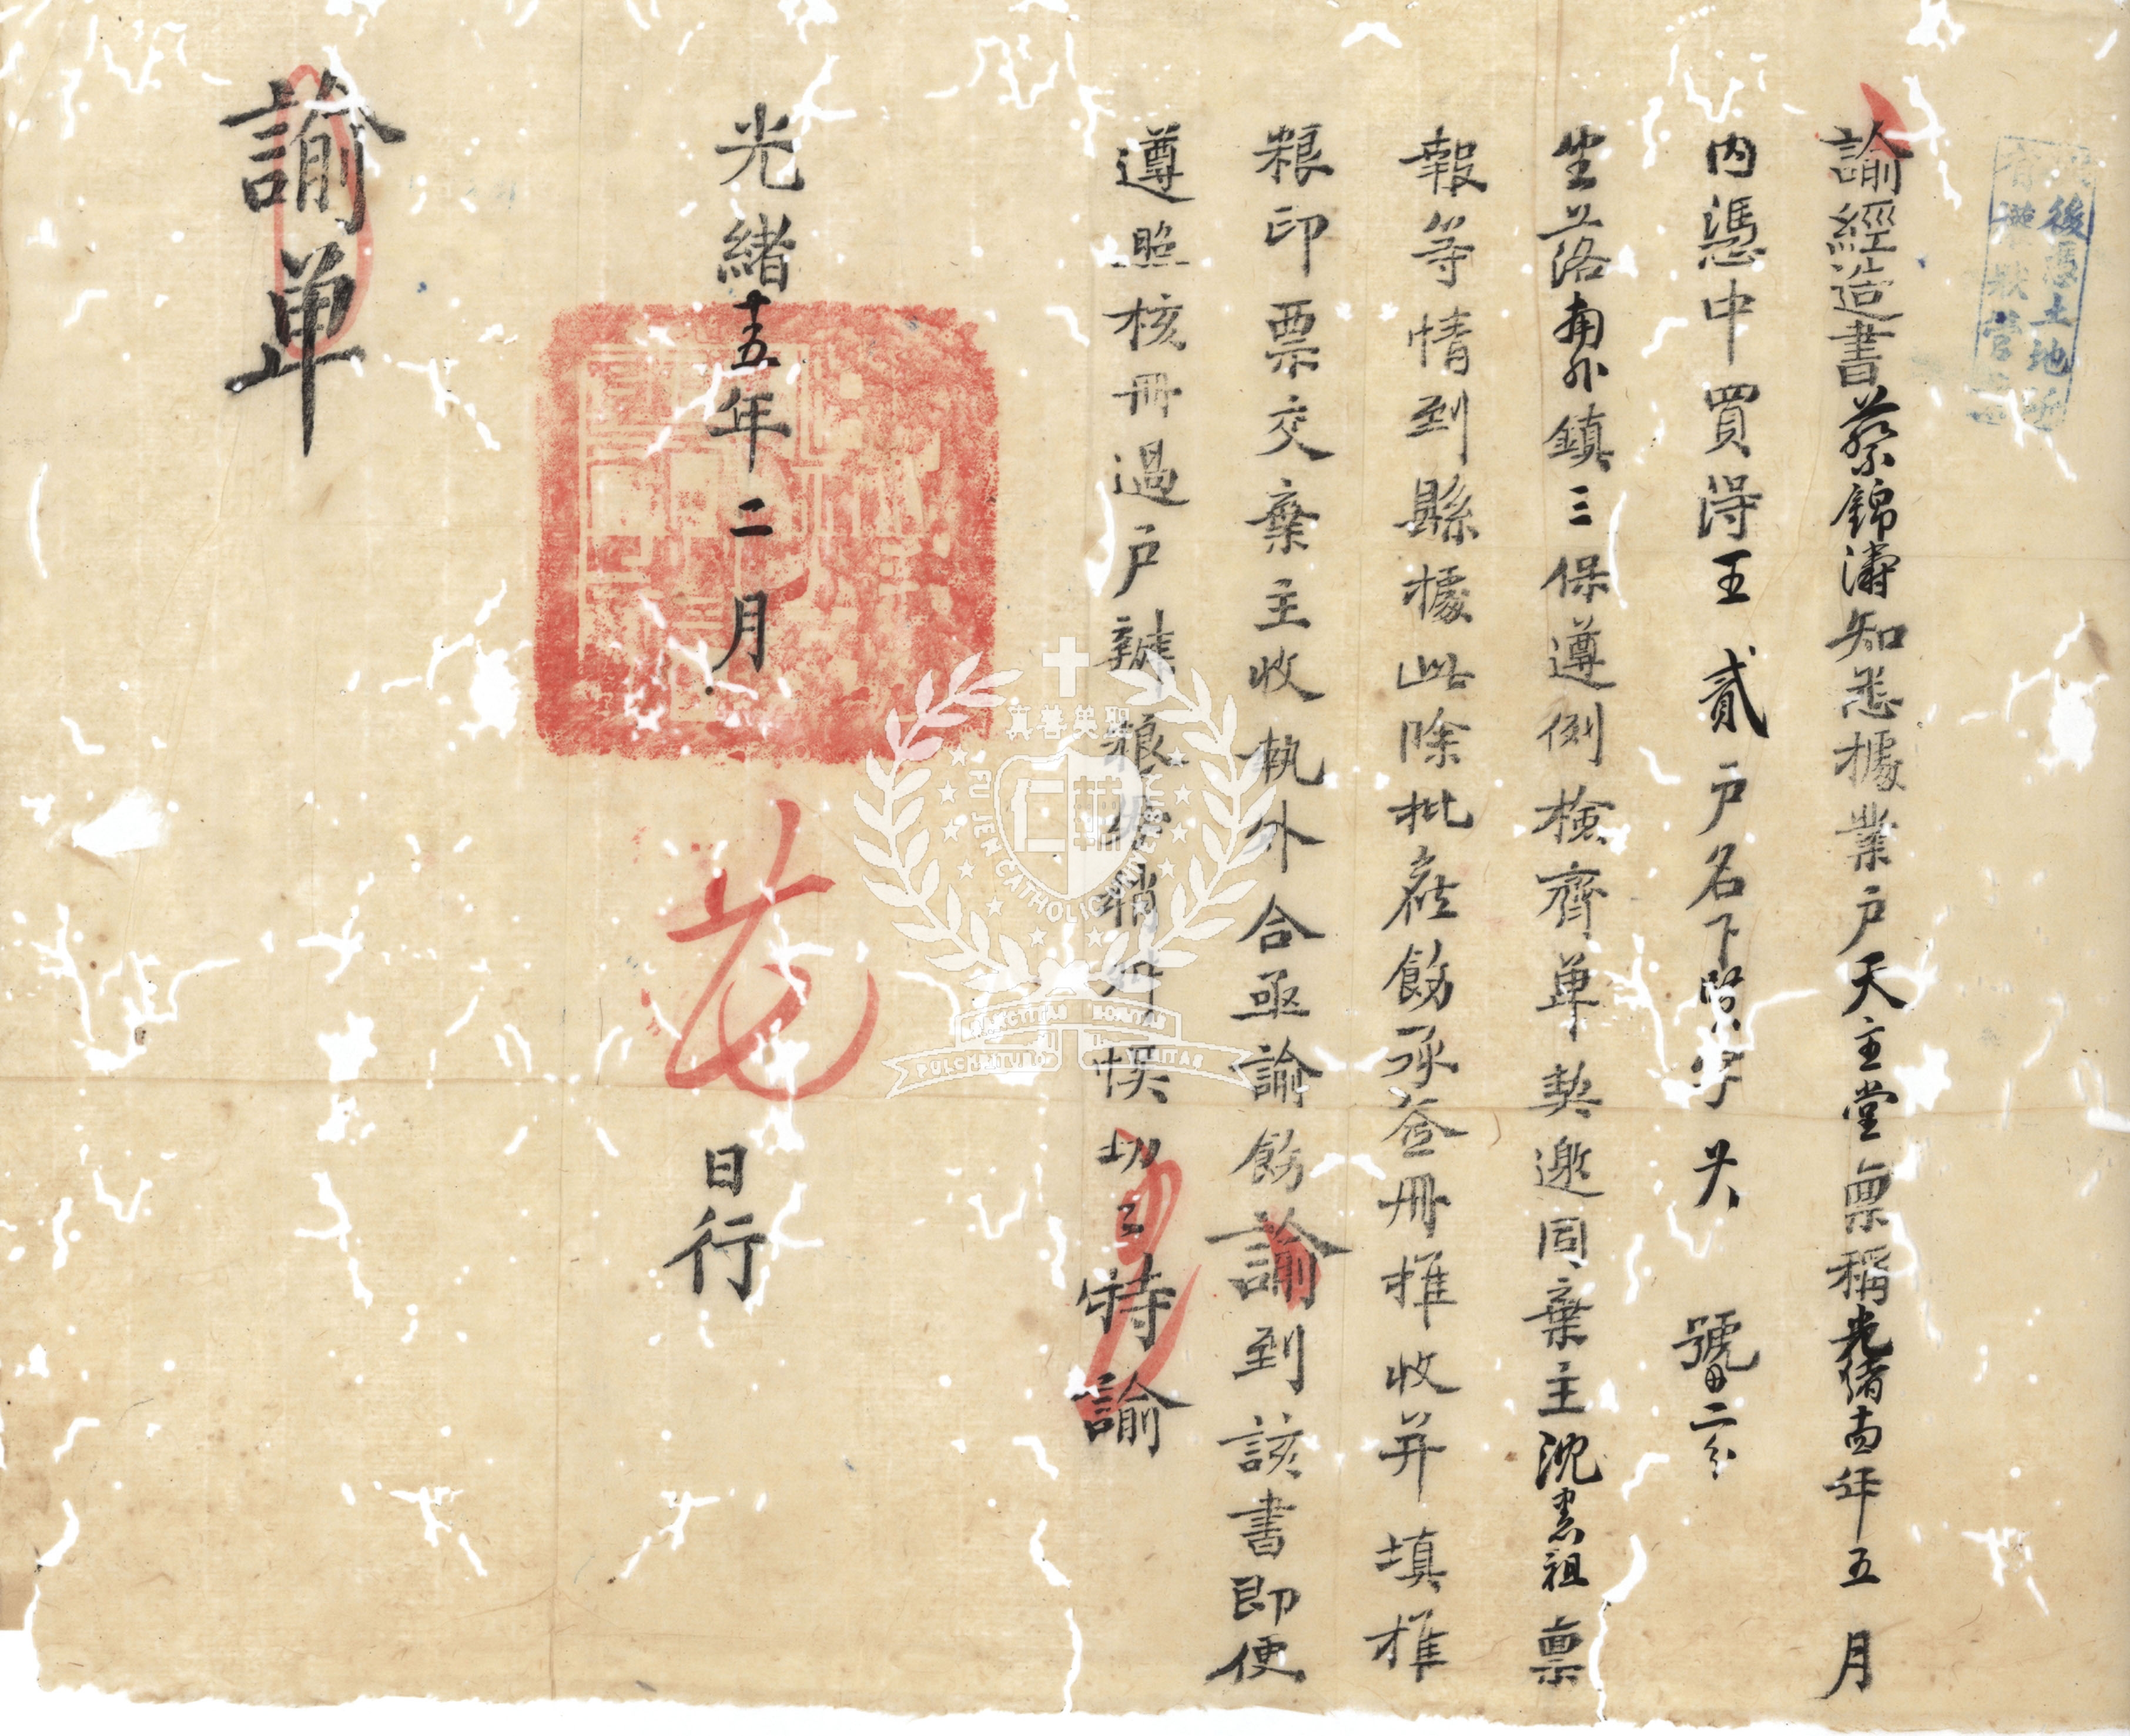 後憑土地所
諭經造書蔡錦濤知悉據業戶天主堂稟稱光緒十四年五月
内憑中買得王貳戶名下賢字 號田二分
坐落南外鎮三保遵例檢齊單契邀同棄主沈 祖稟
報等情到縣據此除批飭承簽冊推收并填推
粮印票交棄主收執外合亟諭飭諭到該書即便
遵照核冊過戶辦粮 稍 悞切〻特諭
光緒十五年二月
日行
諭单
聖美善真
FU JEN CATHOLIC UNIVERSITY
SANCTITAS BONITAS
PULCHRITUDO VERITAS